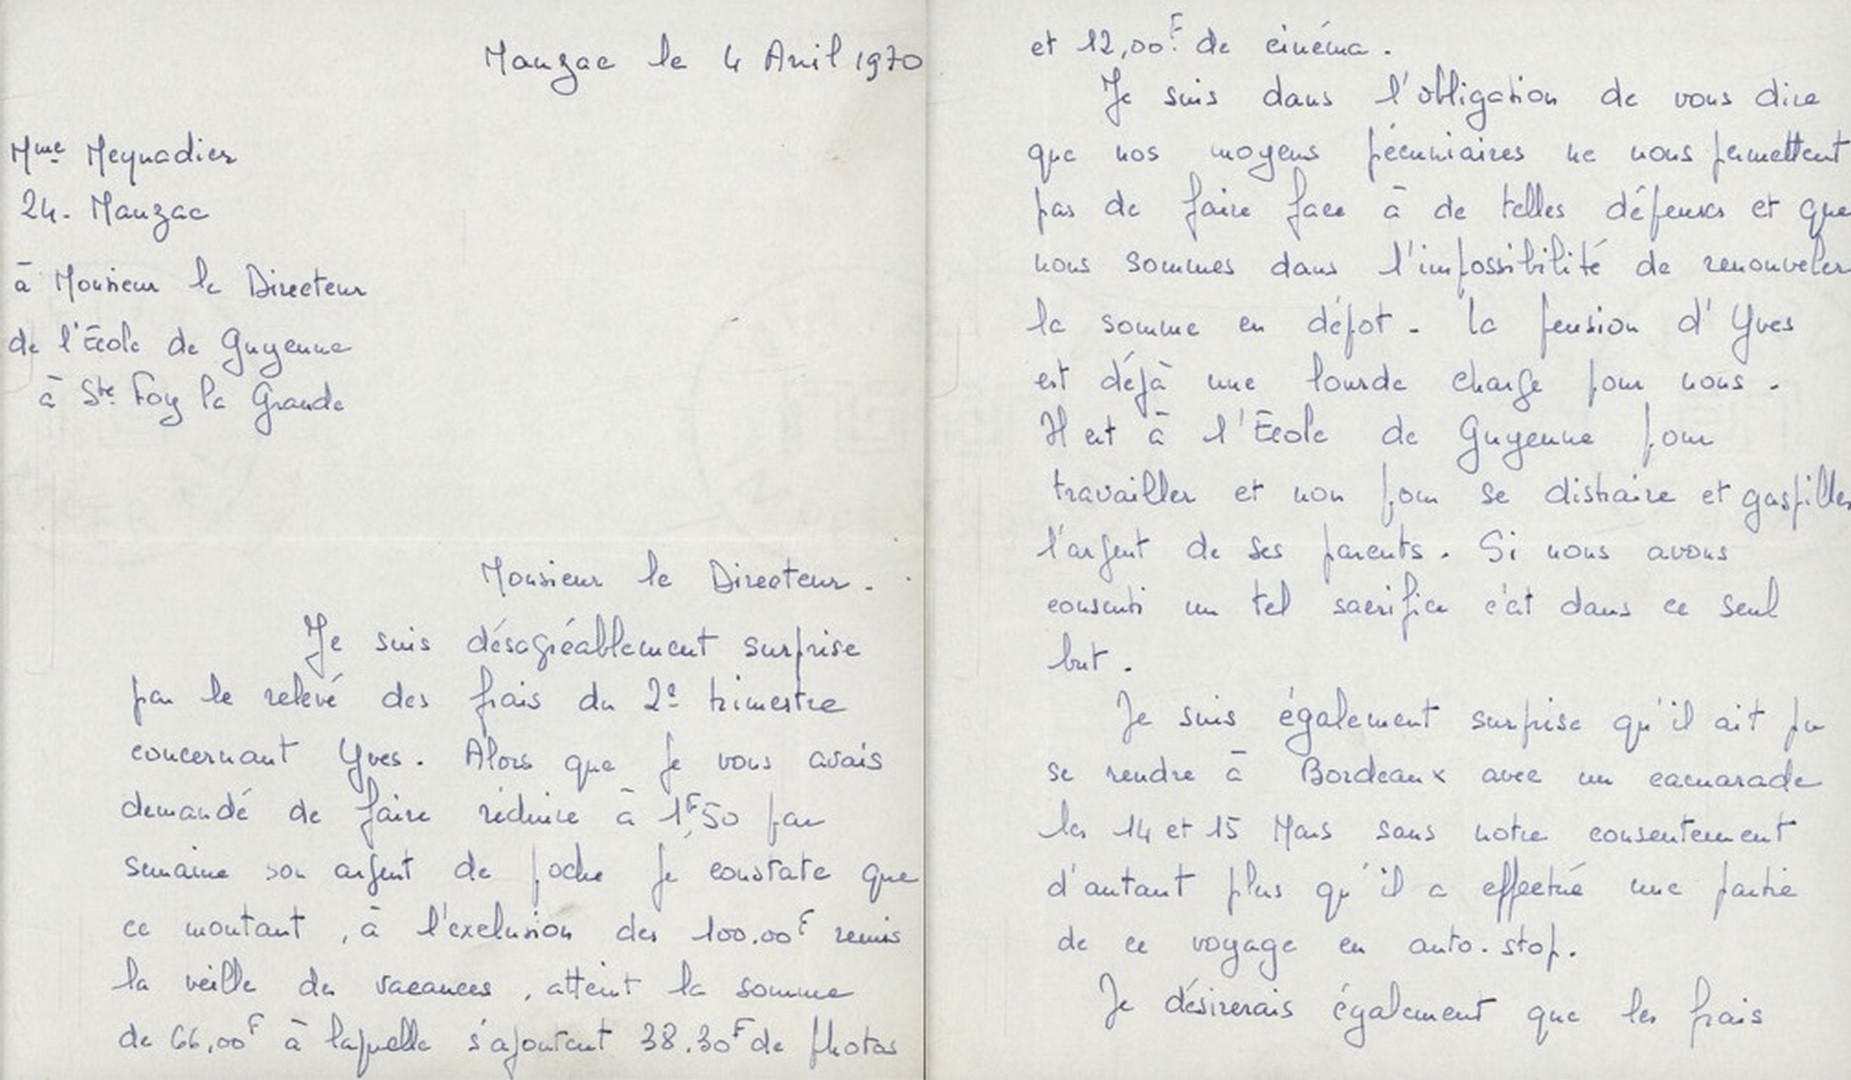 Manzac le 4 Avril 1970
Mme Meynadier
24. Manzac
à Monsieur le Directeur
de l'École de Guyenne
à Ste Foy la Grande
Monsieur le Directeur.
Je suis désagréablement surprise
par le relevé des frais du 2e trimestre
concernant Yves. Alors que je vous avais
demandé de faire réduire à 1F,50 par
semaine son argent de poche je constate que
ce montant, à l'exclusion des 100.00F remis
la veille des vacances, atteint la somme
de 66,00F à laquelle s'ajoutent 38.30F de photos
et 12,00F de cinéma.
Je suis dans l'obligation de vous dire
que nos moyens pécuniaires ne nous permettent
pas de faire face à de telles dépenses et que
nous sommes dans l'impossibilité de renouveler
la somme en dépot. La pension d'Yves
est déjà une lourde charge pour nous.
Il est à l'École de Guyenne pour
travailler et non pour se distraire et gaspiller
l'argent de ses parents. Si nous avons
consenti un tel sacrifice c'est dans ce seul
but.
Je suis également surprise qu'il ait pu
se rendre à Bordeaux avec un camarade
les 14 et 15 Mars sans notre consentement
d'autant plus qu'il a effectué une partie
de ce voyage en auto-stop.
Je désirerais également que les frais